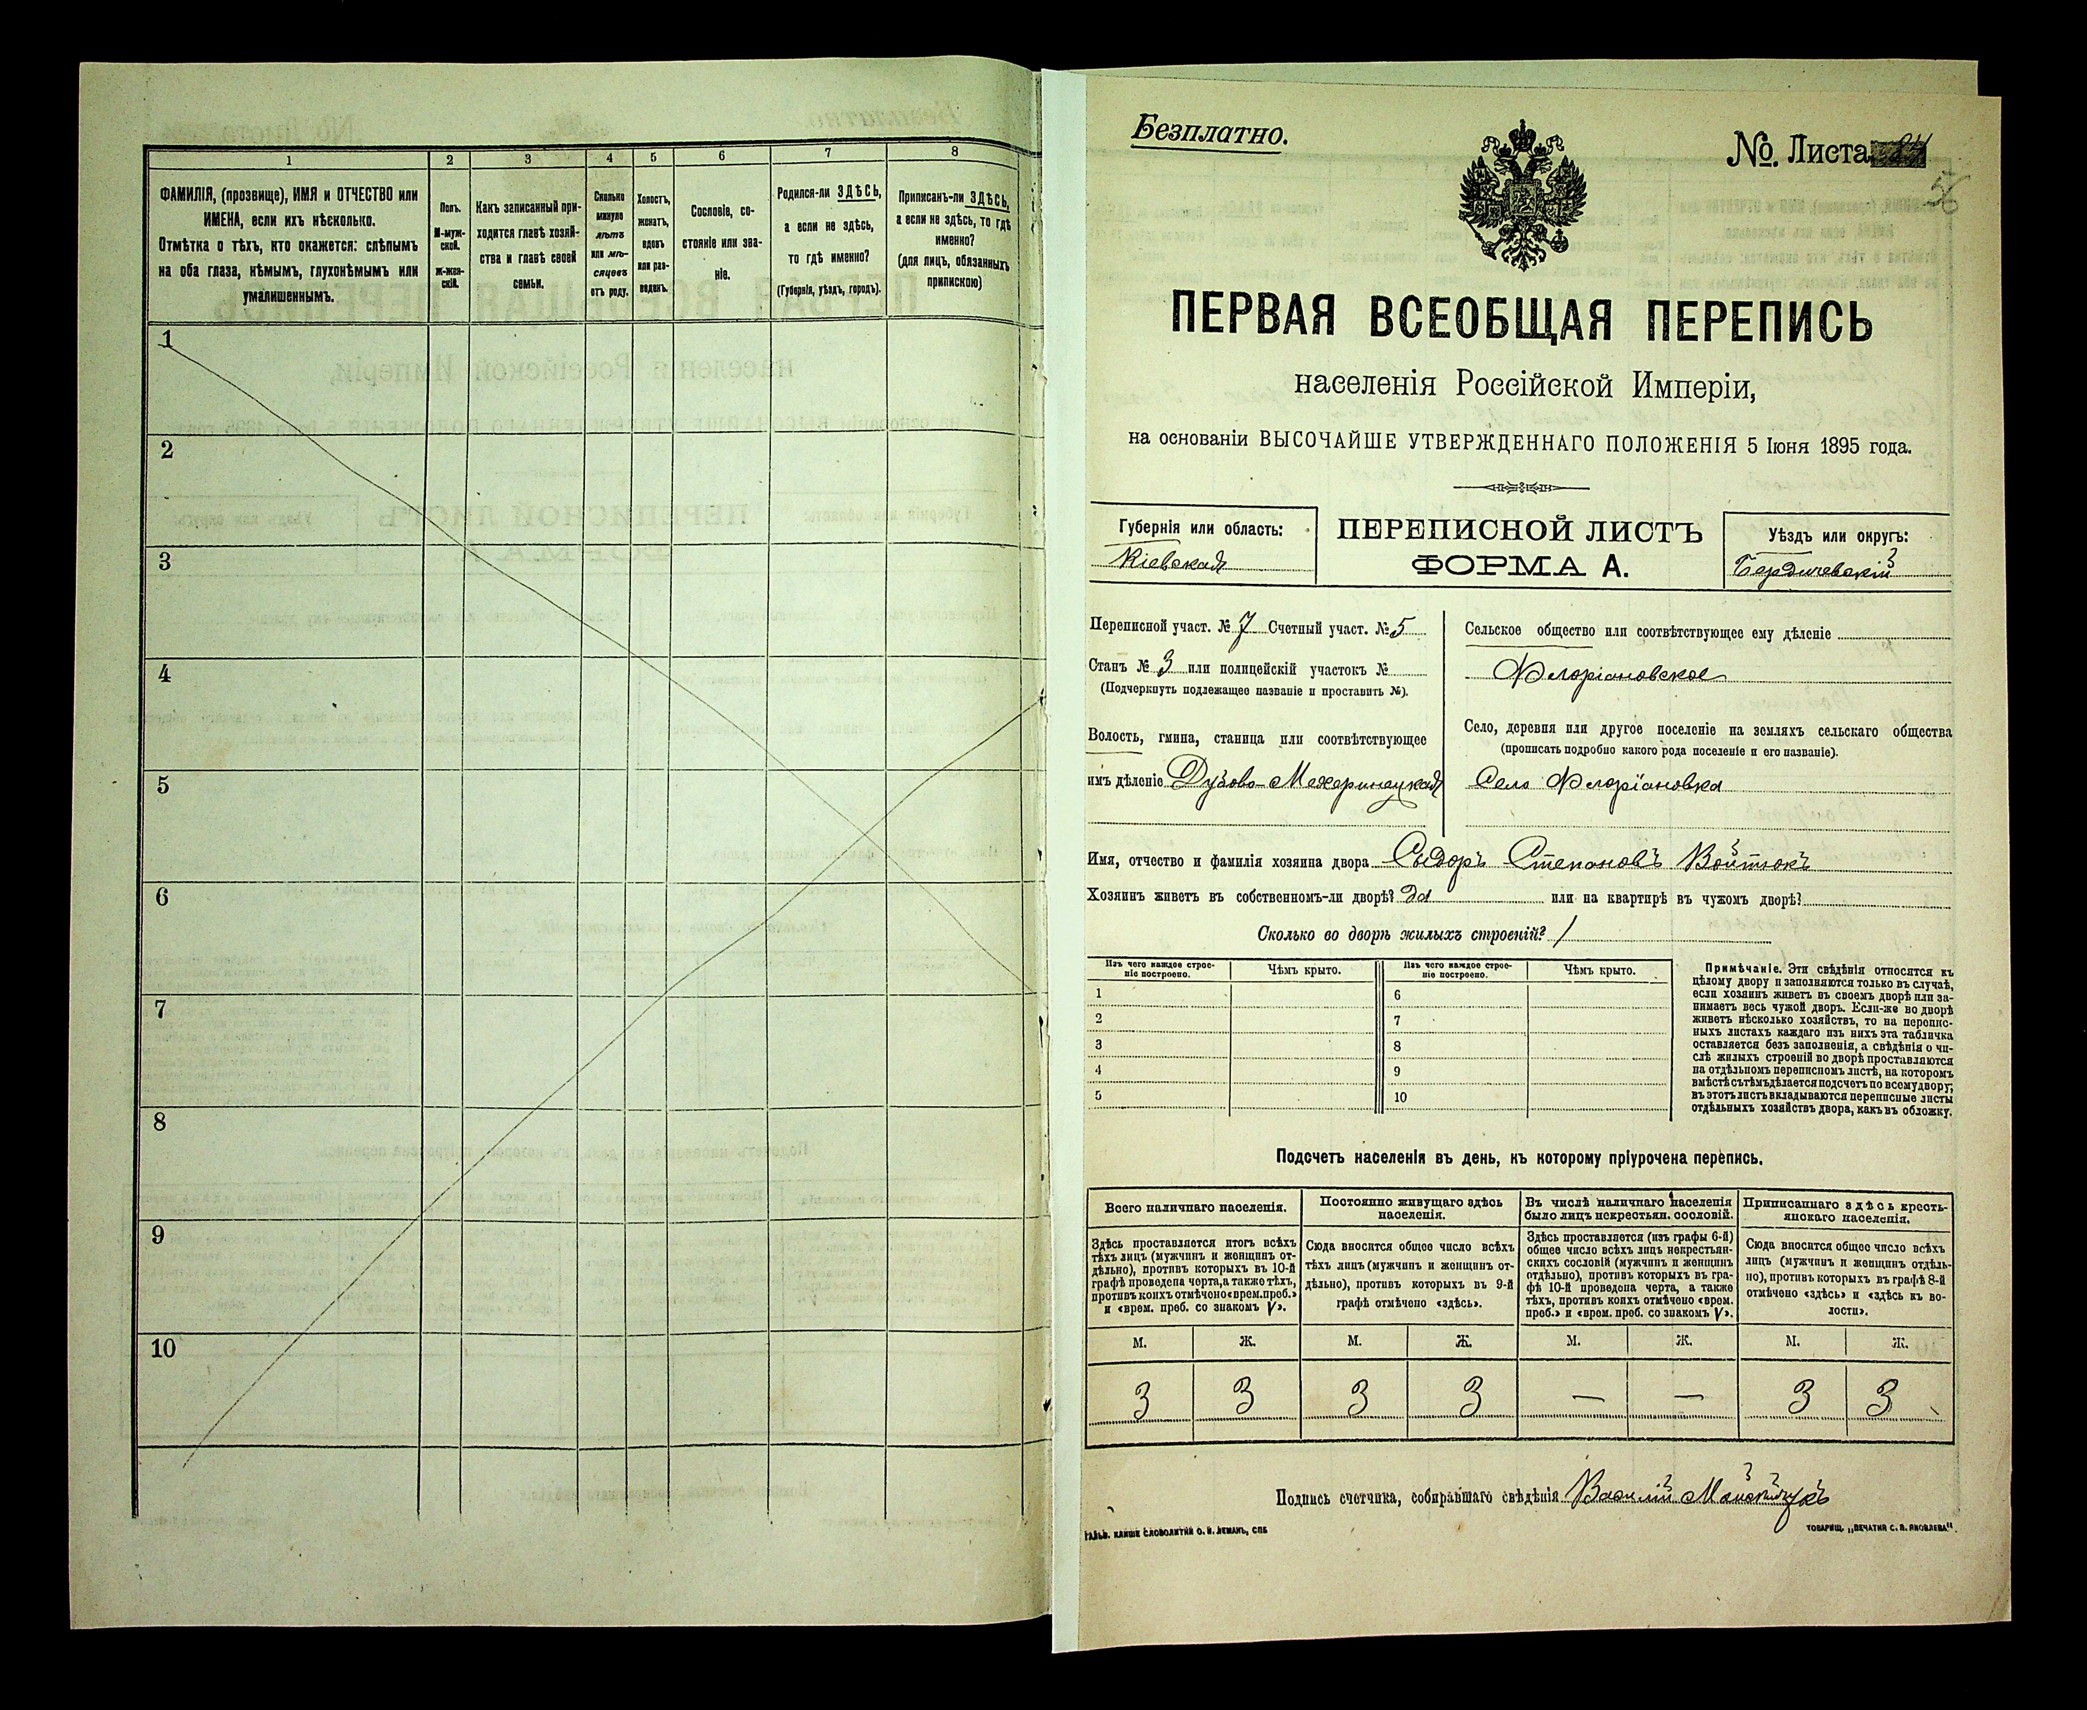 1
2
3
4
5
6
7
8
ФАМИЛІЯ, (прозвище), ИМЯ и ОТЧЕСТВО или
ИМЕНА, если ихъ нѣсколько.
Отмѣтка о тѣхъ, кто окажется: слѣпымъ
на оба глаза, нѣмымъ, глухонѣмымъ или
умалишеннымъ.
Полъ.
М-муж-
ской.
Ж-жен-
скій.
Какъ записанный при-
ходится главѣ хозяй-
ства и главѣ своей
семьи.
Сколько
минуло
лѣтъ
или мѣ-
сяцевъ
отъ роду.
Холостъ,
женатъ,
вдовъ
или раз-
веденъ.
Сословіе, со-
стояніе или зва-
ніе.
Родился-ли ЗДѢСЬ,
а если не здѣсь,
то гдѣ именно?
(Губернія, уѣздъ, городъ).
Приписанъ-ли ЗДѢСЬ,
а если не здѣсь, то гдѣ
именно?
(для лицъ, обязанныхъ
припискою)
1
2
3
4
5
6
7
8
9
10
Безплатно.
№. Листа
ПЕРВАЯ ВСЕОБЩАЯ ПЕРЕПИСЬ
населенія Россійской Имперіи,
на основаніи ВЫСОЧАЙШЕ УТВЕРЖДЕННАГО ПОЛОЖЕНІЯ 5 Іюня 1895 года.
Губернія или область:
Кіевская
ПЕРЕПИСНОЙ ЛИСТЪ
ФОРМА А.
Уѣздъ или округъ:
Бердичевскій
Переписной участ. № 7 Счетный участ. № 5
Станъ № 3 или полицейскій участокъ №
(Подчеркнуть подлежащее названіе и проставить №).
Волость, гмина, станица или соотвѣтствующее
имъ дѣленіе Дузово-Махаринецкая
Сельское общество или соотвѣтствующее ему дѣленіе
Флоріановское
Село, деревня или другое поселеніе на земляхъ сельскаго общества
(прописать подробно какого рода поселеніе и его названіе).
Село Флоріановка
Имя, отчество и фамилія хозяина двора Сыдоръ Степановъ Войтюкъ
Хозяинъ живетъ въ собственномъ-ли дворѣ? да или на квартирѣ въ чужомъ дворѣ?
Сколько во дворѣ жилыхъ строеній? 1
Изъ чего каждое строе-
ніе построено.
Чѣмъ крыто.
Изъ чего каждое строе-
ніе построено.
Чѣмъ крыто.
1
6
2
7
3
8
4
9
5
10
Примѣчаніе. Эти свѣдѣнія относятся къ
цѣлому двору и заполняются только въ случаѣ,
если хозяинъ живетъ въ своемъ дворѣ или за-
нимаетъ весь чужой дворъ. Если-же во дворѣ
живетъ нѣсколько хозяйствъ, то на перепис-
ныхъ листахъ каждаго изъ нихъ эта табличка
оставляется безъ заполненія, а свѣдѣнія о чи-
слѣ жилыхъ строеній во дворѣ проставляются
на отдѣльномъ переписномъ листѣ, на которомъ
вмѣстѣ съ тѣмъ дѣлается подсчетъ по всему двору;
въ этотъ листъ вкладываются переписные листы
отдѣльныхъ хозяйствъ двора, какъ въ обложку.
Подсчетъ населенія въ день, къ которому пріурочена перепись.
Всего наличнаго населенія.
Постоянно живущаго здѣсь
населенія.
Въ числѣ наличнаго населенія
было лицъ некрестьян. сословій.
Приписаннаго здѣсь кресть-
янскаго населенія.
Здѣсь проставляется итогъ всѣхъ
тѣхъ лицъ (мужчинъ и женщинъ от-
дѣльно), противъ которыхъ въ 10-й
графѣ проведена черта, а также тѣхъ,
противъ коихъ отмѣчено «врем. преб.»
и «врем. преб. со знакомъ V».
Сюда вносится общее число всѣхъ
тѣхъ лицъ (мужчинъ и женщинъ от-
дѣльно), противъ которыхъ въ 9-й
графѣ отмѣчено «здѣсь».
Здѣсь проставляется (изъ графы 6-й)
общее число всѣхъ лицъ некрестьян-
скихъ сословій (мужчинъ и женщинъ
отдѣльно), противъ которыхъ въ гра-
фѣ 10-й проведена черта, а также
тѣхъ, противъ коихъ отмѣчено «врем.
преб.» и «врем. преб. со знакомъ V».
Сюда вносится общее число всѣхъ
лицъ (мужчинъ и женщинъ отдѣль-
но), противъ которыхъ въ графѣ 8-й
отмѣчено «здѣсь» и «здѣсь къ во-
лости».
М. Ж. М. Ж. М. Ж. М. Ж.
3 3 3 3 — — 3 3
Подпись счетчика, собиравшаго свѣдѣнія Василій
ГАЛЬВ. КЛИШЕ СЛОВОЛИТНИ О. И. ЛЕМАНЪ, СПБ
ТОВАРИЩ. „ПЕЧАТНЯ С. П. ЯКОВЛЕВА“.